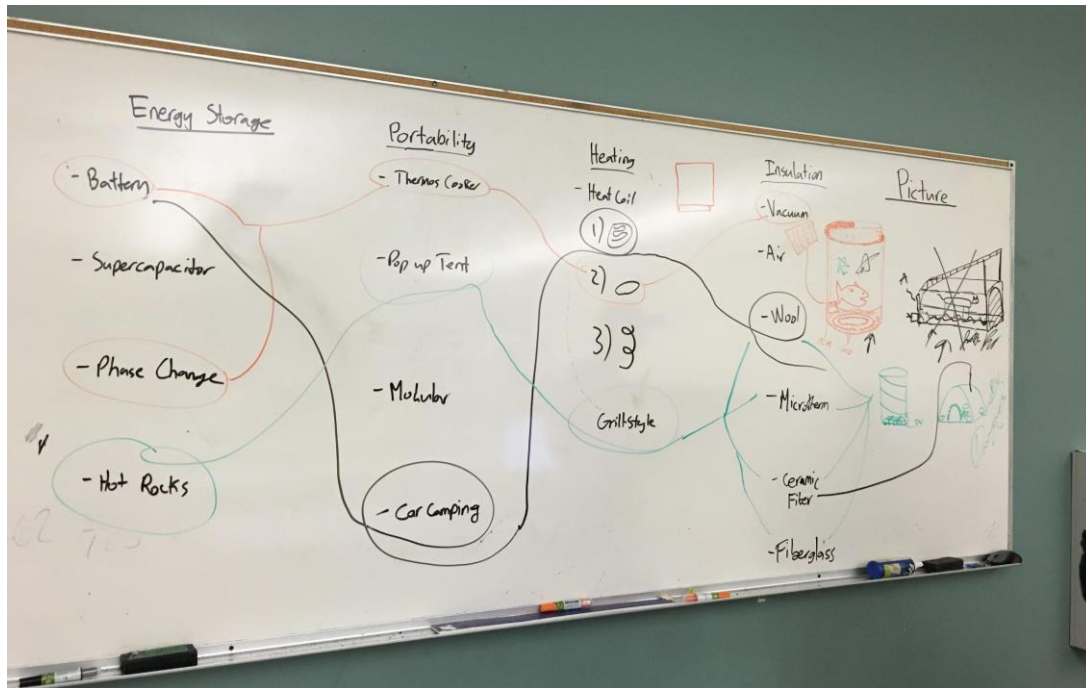 Energy Storage
- Battery
- Supercapacitor
- Phase Change
- Hot Rocks
Portability
- Thermos Cooker
- Pop up Tent
- Modular
- Car Camping
Heating
- Heat Coil
1)
2)
3)
Grill style
Insulation
- Vacuum
- Air
- Wool
- Microtherm
- Ceramic
Fiber
- Fiberglass
Picture
A